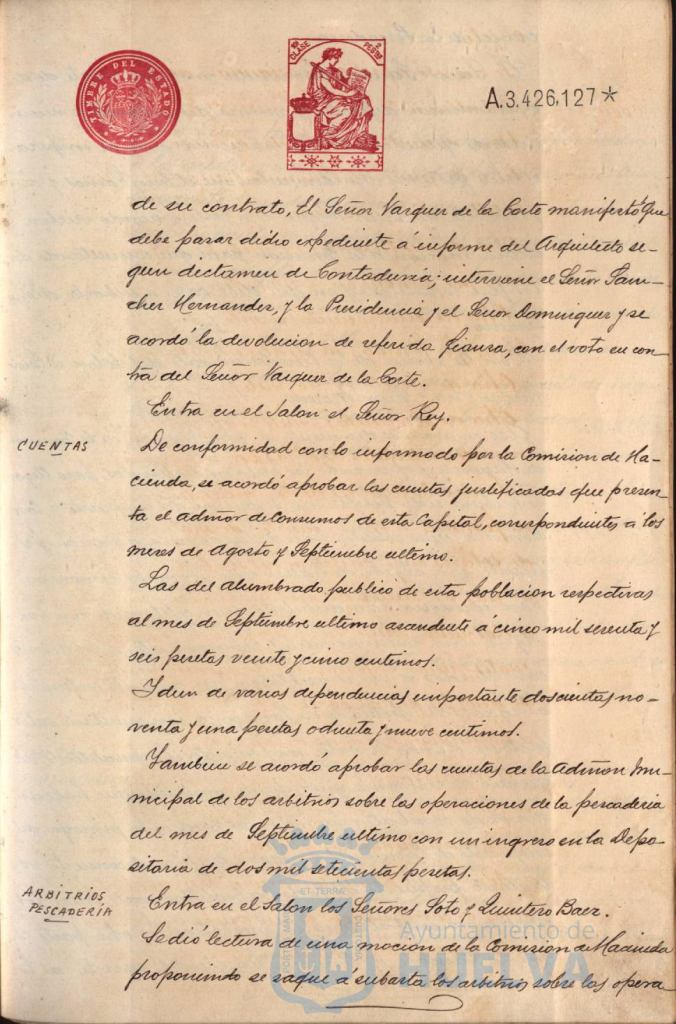 TIMBRE DEL ESTADO
CLASE
A.3.426,127*
de su contrato, El Señor Vazquez de la Corte manifestó que
debe pasar dicho expediente á informe del Arquitecto se-
gun dictamen de Contaduria; interviene el Señor San-
chez Hernandez, y la Presidencia y el Señor Dominguez y se
acordó la devolucion de referida fianza, con el voto en con
tra del Señor Vazquez de la Corte.
Entra en el Salon el Señor Rey.
CUENTAS
De conformidad con lo informado por la Comision de Ha-
cienda, se acordó aprobar las cuentas justificadas que presen-
ta el admor de Consumos de esta Capital, correspondientes á los
meses de Agosto y Septiembre ultimo.
Las del alumbrado publico de esta poblacion respectivas
al mes de Septiembre ultimo ascendente á cinco mil sesenta y
seis pesetas veinte y cinco centimos.
Idem de varias dependencias importante doscientas no-
venta y una pesetas ochenta y nueve centimos.
Tambien se acordó aprobar las cuentas de la Admon Mu-
nicipal de los arbitrios sobre las operaciones de la pescaderia
del mes de Septiembre ultimo con un ingreso en la Depo-
sitaria de dos mil setecientas pesetas.
ARBITRIOS
PESCADERÍA
Entra en el Salon los Señores Soto y Quintero Baez.
Se dió lectura de una mocion de la Comision de Hacienda
proponiendo se saque á subasta los arbitrios sobre las opera
Ayuntamiento de
HUELVA